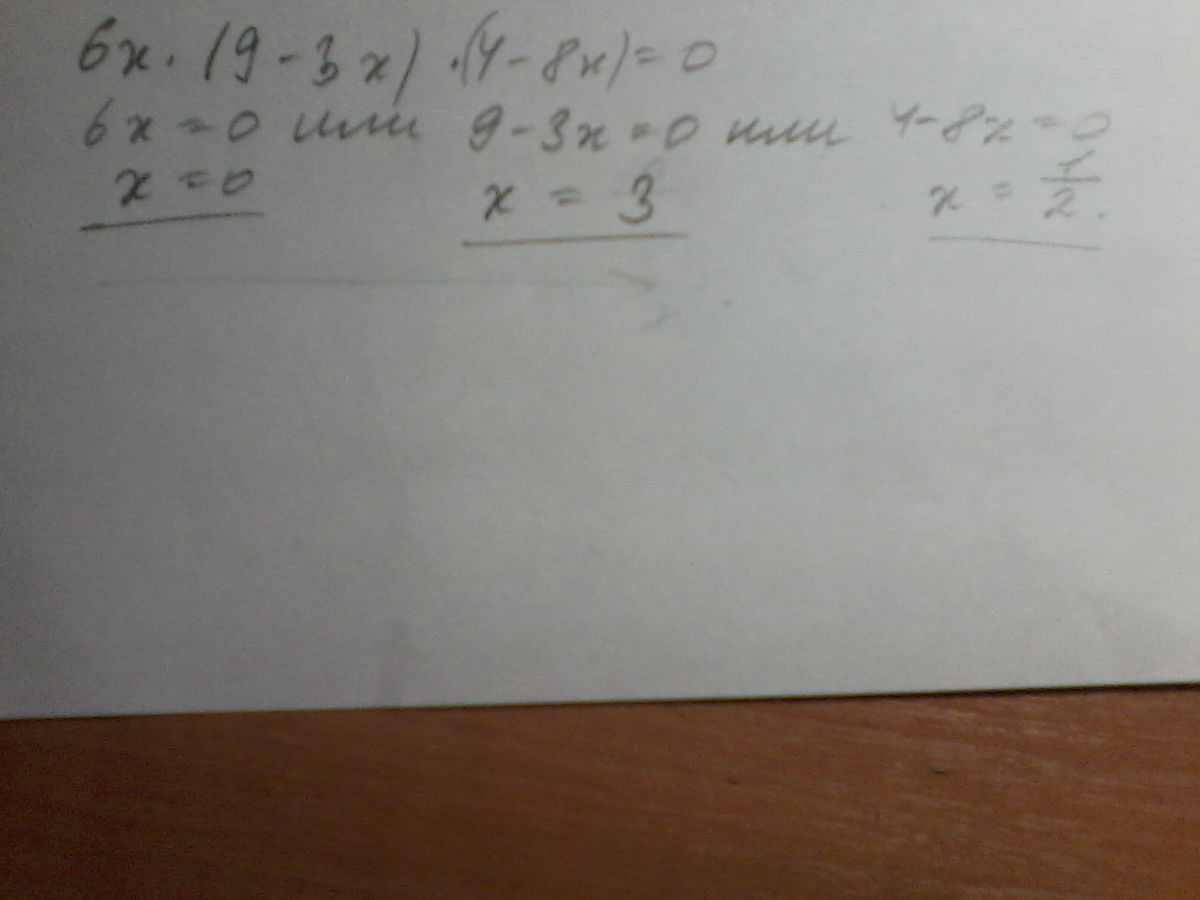 6x · (9 - 3x) · (4 - 8x) = 0
6x = 0 или 9 - 3x = 0 или 4 - 8x = 0
x = 0 x = 3 x = 1/2.
x